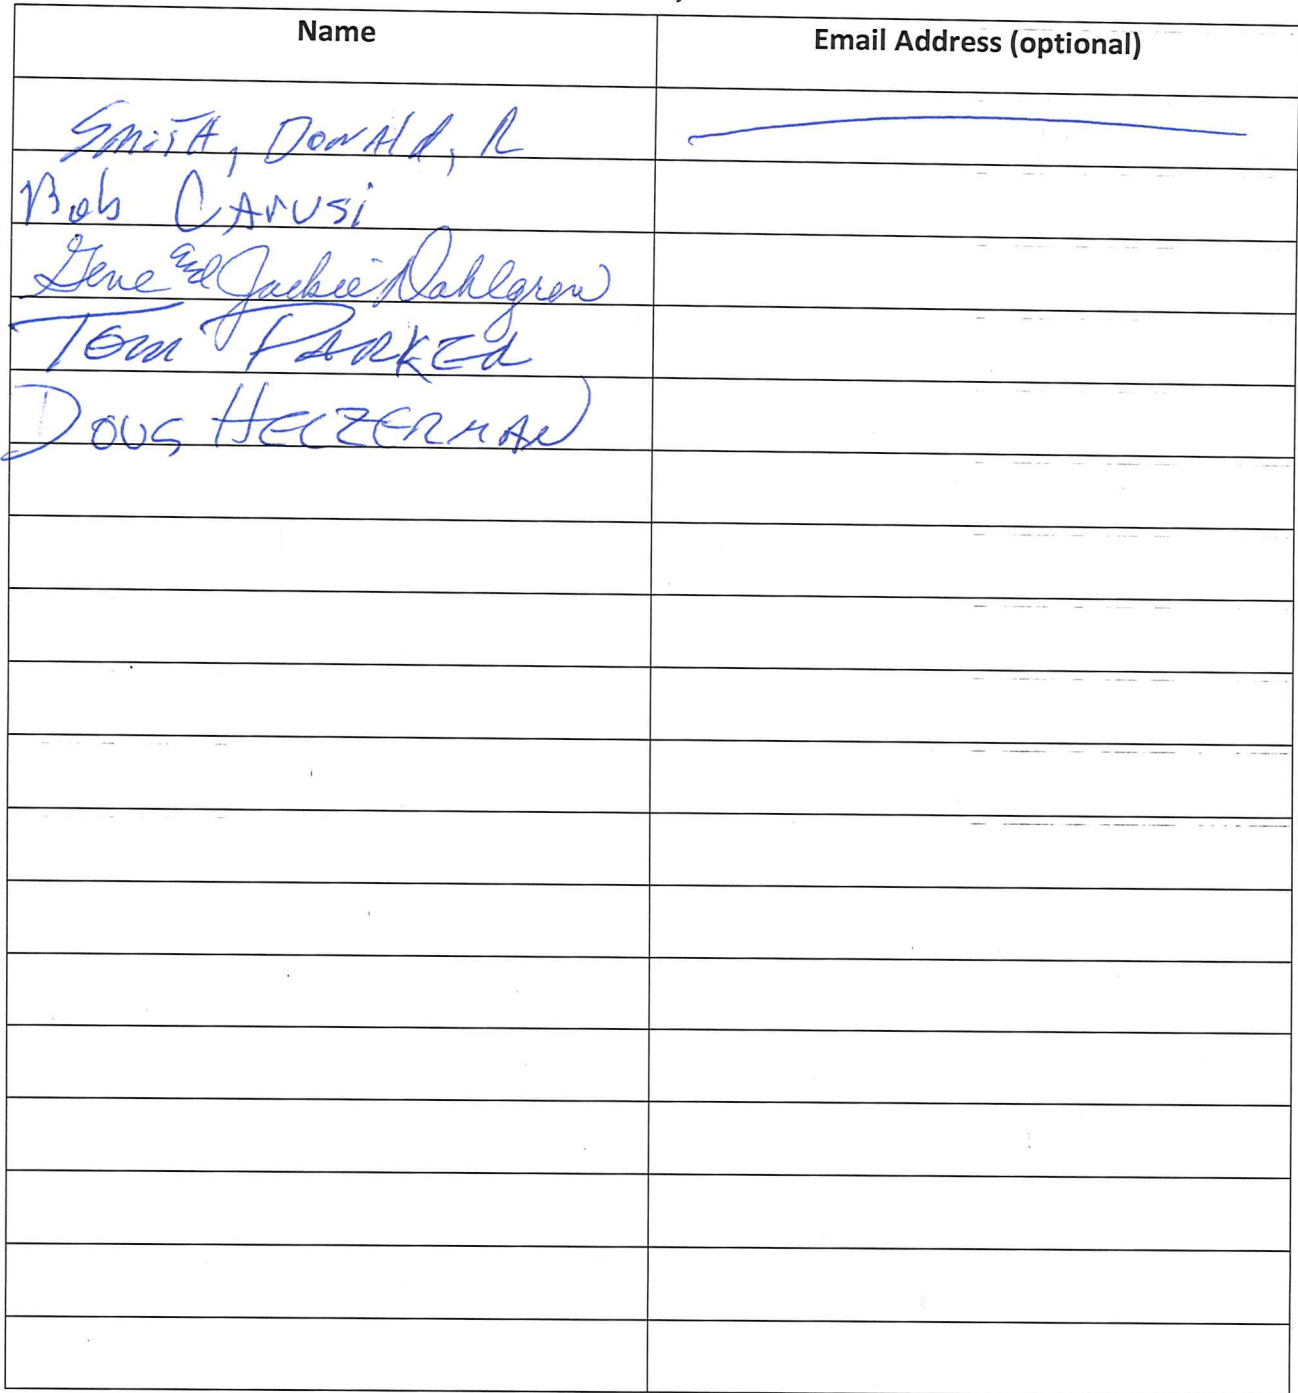 Name Email Address (optional)
Smith, Donald, R
Bob Carusi
Gene and Jackie Dahlgren
Tom Parker
Doug Helzerman